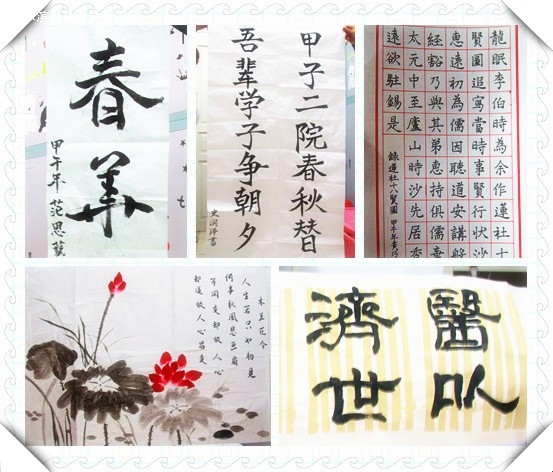 春華
甲午年 范思
甲子二院春秋替
吾辈学子争朝夕
史润泽书
龍眠李伯時為余作蓮社十
賢圖追寫當時事賢行狀沙
惠遠初為儒因聽道安講般
經豁乃與其弟惠持俱儒素
太元中至廬山時沙先居香
遠欲駐錫是
錄蓮社十八賢圖 甲午年黄巧
木兰花令
人生若只如初見
何事秋風悲画扇
等闲变却故人心
却道故人心易变
醫以
濟世